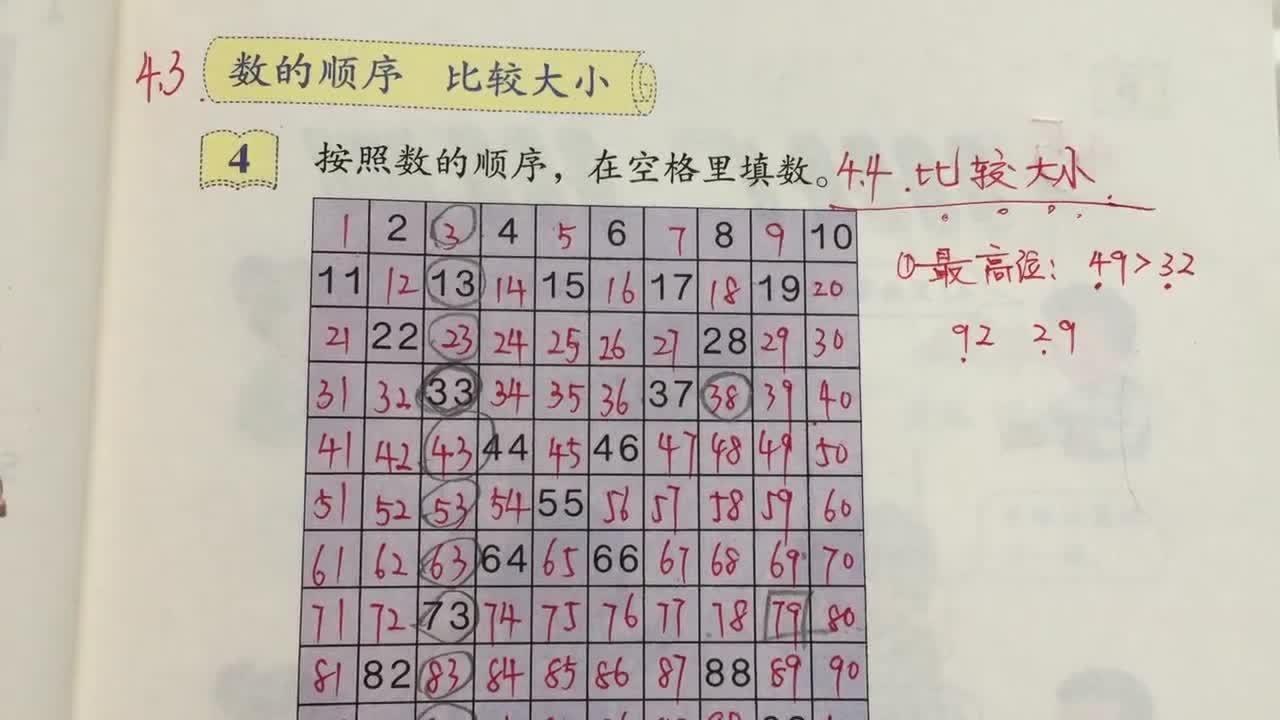 4.3 数的顺序 比较大小
4 按照数的顺序，在空格里填数。 4.4 比较大小
1 2 3 4 5 6 7 8 9 10
①最高位: 49>32
11 12 13 14 15 16 17 18 19 20
92 29
21 22 23 24 25 26 27 28 29 30
31 32 33 34 35 36 37 38 39 40
41 42 43 44 45 46 47 48 49 50
51 52 53 54 55 56 57 58 59 60
61 62 63 64 65 66 67 68 69 70
71 72 73 74 75 76 77 78 79 80
81 82 83 84 85 86 87 88 89 90